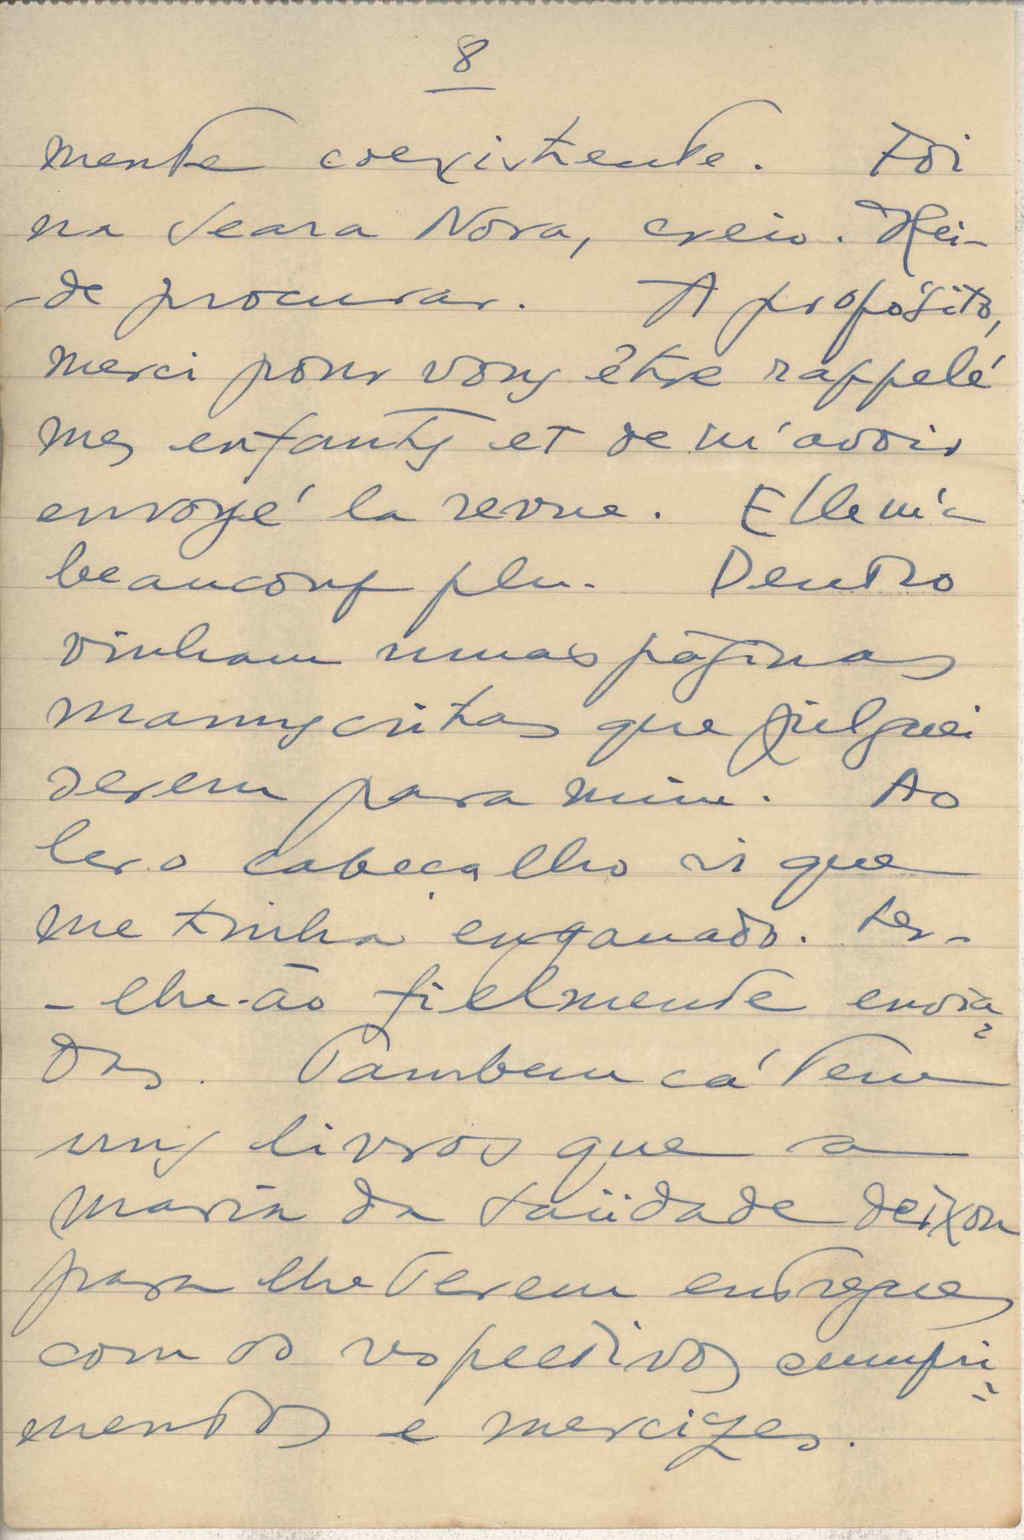 8
mente coexistente. Foi
na Seara Nova, creio. Hei-
-de procurar. A propósito,
merci pour vous être rappelé
mes enfants et de m'avoir
envoyé la revue. Elle m'a
beaucoup plu. Dentro
vinham umas páginas
manuscritas que julguei
serem para mim. Ao
ler o cabeçalho vi que
me tinha enganado. Ser-
-lhe-ão fielmente envia-
das. Tambem cá tem
uns livros que a
Maria da Saüdade deixou
para lhe serem entregues
com os respectivos cumpri-
mentos e mercizes.